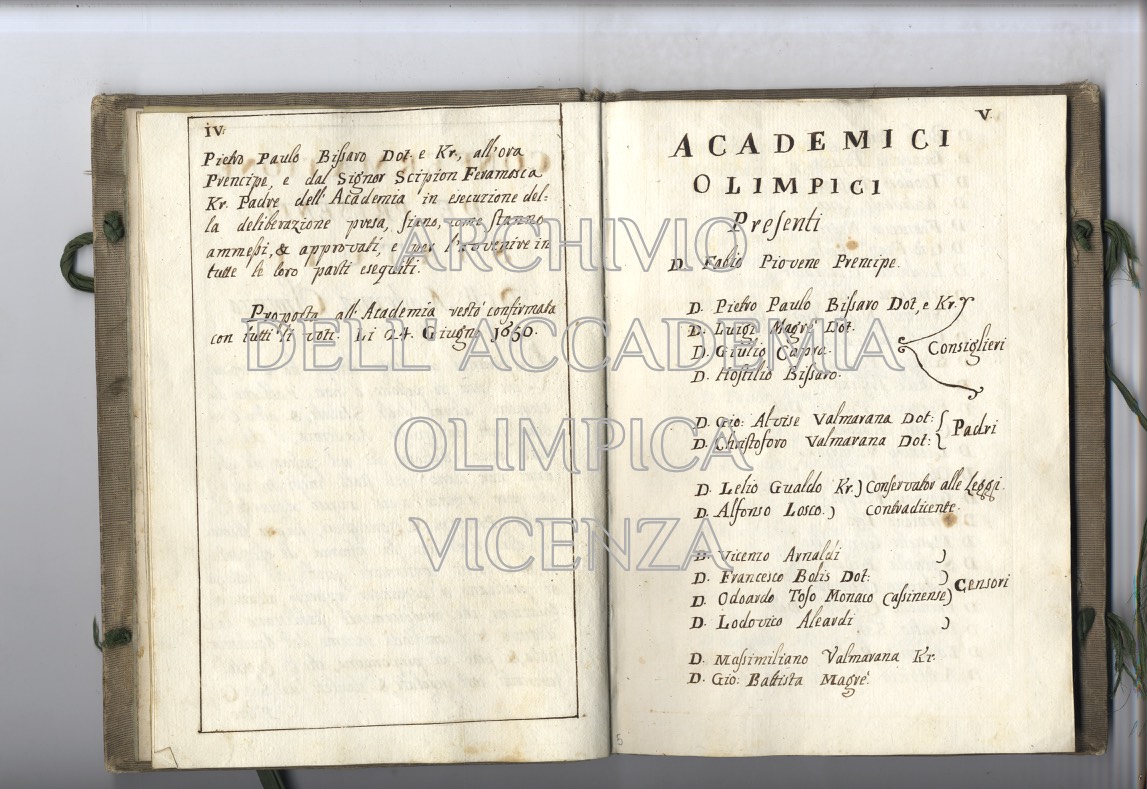 iv.
Pietro Paulo Bissaro Dot. e Kr., all'ora
Prencipe, e dal Signor Scipion Feramosca
Kr. Padre dell'Academia in esecuzione del-
la deliberazione presa, sieno, come stanno
ammessi, & approvati, e per l'avvenire in
tutte le loro parti esequiti.
Proposta all'Academia restò confirmata
con tutti li voti. Li 24. Giugno 1650.
V.
ACADEMICI
OLIMPICI
Presenti
D. Fabio Piovene Prencipe.
D. Pietro Paulo Bissaro Dot, e Kr.
D. Luigi Magrè Dot.
D. Giulio Capra.
D. Hostilio Bissaro.
Consiglieri
D. Gio: Alvise Valmarana Dot:
D. Christoforo Valmarana Dot:
Padri
D. Lelio Gualdo Kr.) Conservator alle Leggi.
D. Alfonso Losco.) Contradicente.
D. Vicenzo Arnaldi )
D. Francesco Bolis Dot: )
D. Odoardo Toso Monaco Cassinense)
D. Lodovico Aleardi )
Censori
D. Massimiliano Valmarana Kr.
D. Gio: Battista Magrè.
5
ARCHIVIO
DELL'ACCADEMIA
OLIMPICA
VICENZA